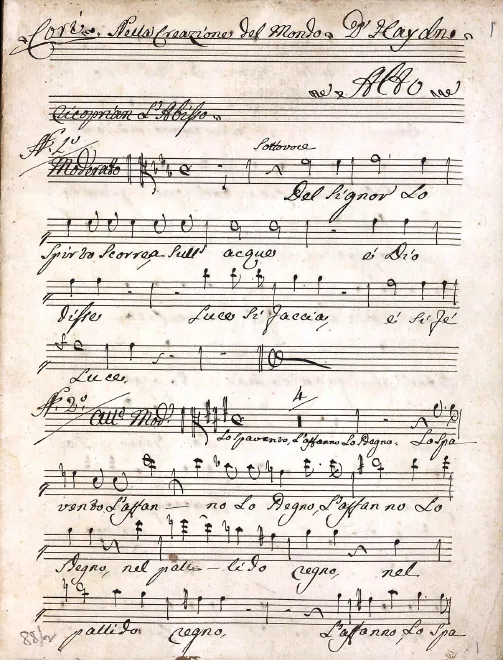 Cori. Nella Creazione del Mondo D' Haydn
Alto
Cicoprian L'Abisso.
N.° 1°
Moderato
Sottovoce
Del Signor Lo
Spirto Scorrea Sull' acque é Dio
disse Luce Si Faccia, é Si Fé
Luce,
N.° 2°
All.° Mod.°
4
Lo Spavento, L'affanno Lo Sdegno. Lo Spa
vento L'affan - no Lo Sdegno, L'affanno Lo
Sdegno, nel palli - lido regno, nel
pallido regno, L'affanno, Lo Spa
1